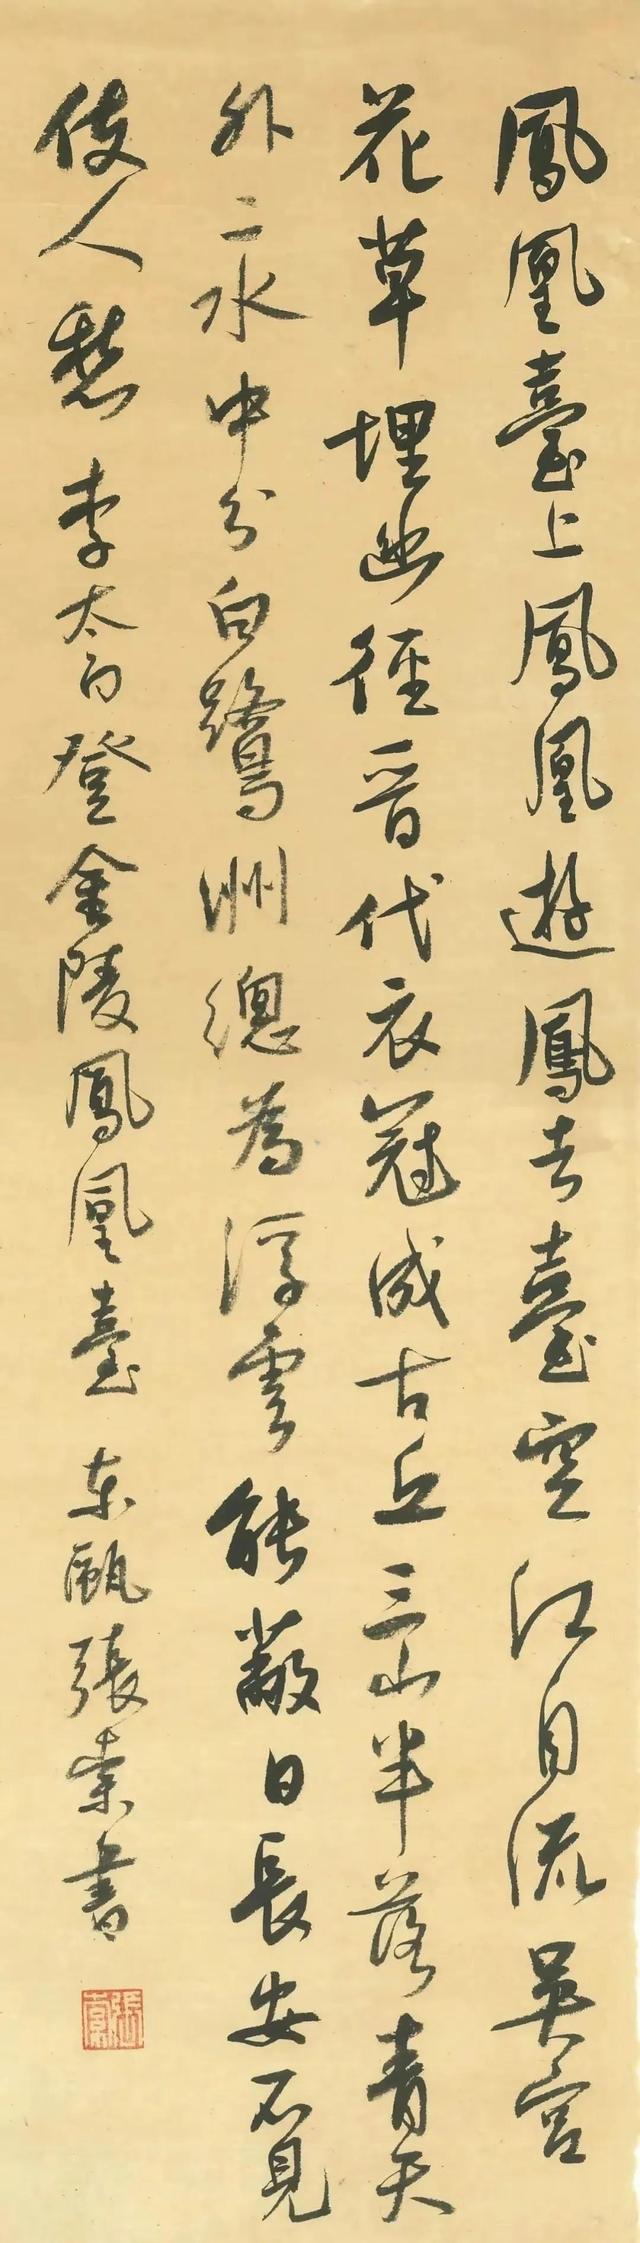 鳳凰臺上鳳凰遊鳳去臺空江自流吳宮
花草埋幽徑晉代衣冠成古丘三山半落青天
外二水中分白鷺洲總為浮雲能蔽日長安不見
使人愁 李太白登金陵鳳凰臺 东甌張索書
張索